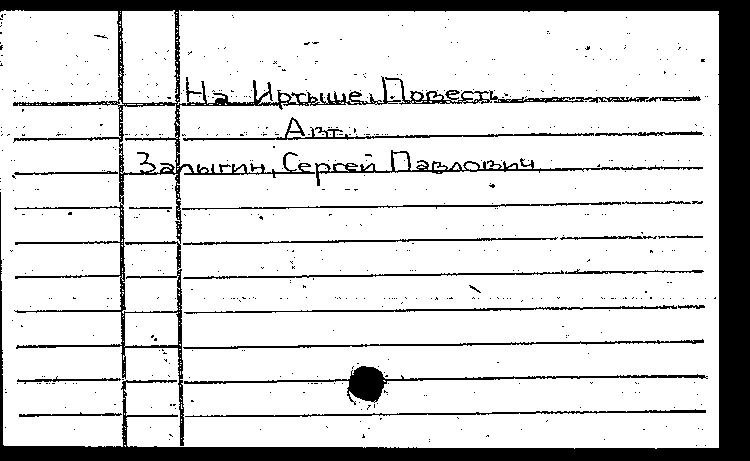 На Иртыше. Повесть.
Авт.:
Залыгин, Сергей Павлович